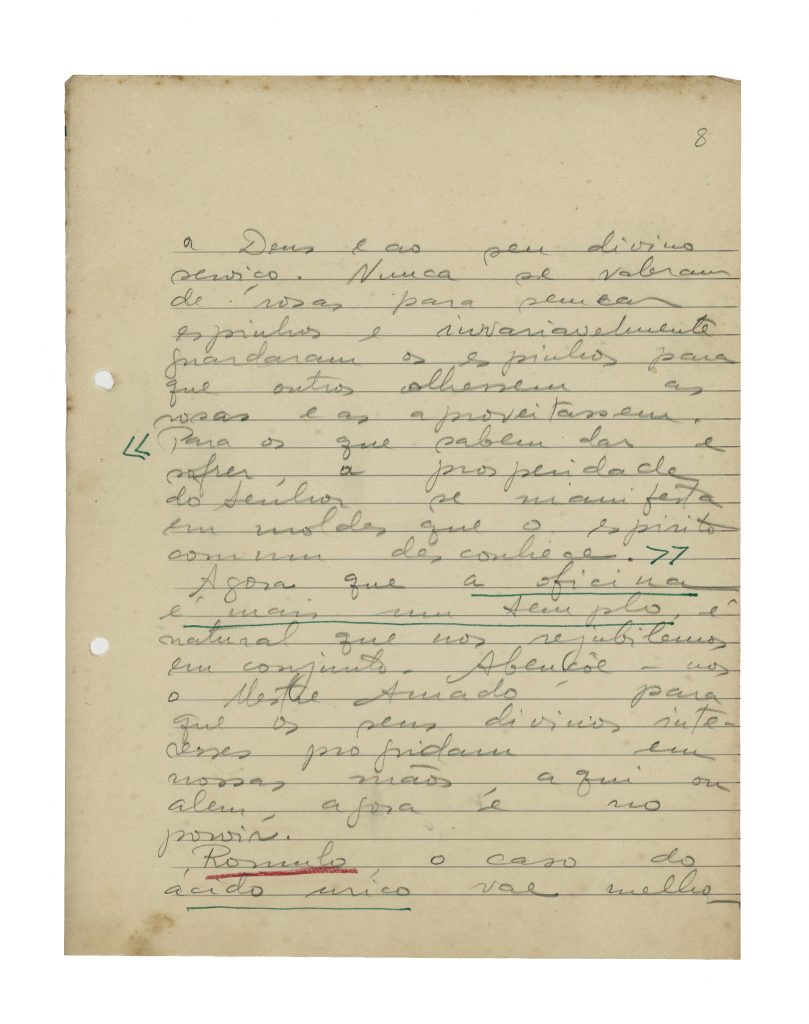 8
a Deus e ao seu divino
serviço. Nunca se valeram
de rosas para semear
espinhos e invariavelmente
guardaram os espinhos para
que outros colhessem as
rosas e as aproveitassem.
<< Para os que sabem dar e
sofrer, a prosperidade
do Senhor se manifesta
em moldes que o espirito
commum desconhece. >>
Agora que a oficina
é mais um templo, é
natural que nos rejubilemos
em conjunto. Abençôe-nos
o Mestre Amado para
que os seus divinos inte-
resses progridam em
nossas mãos aqui ou
alem agora e no
porvir.
Romulo, o caso do
ácido urico vae melho